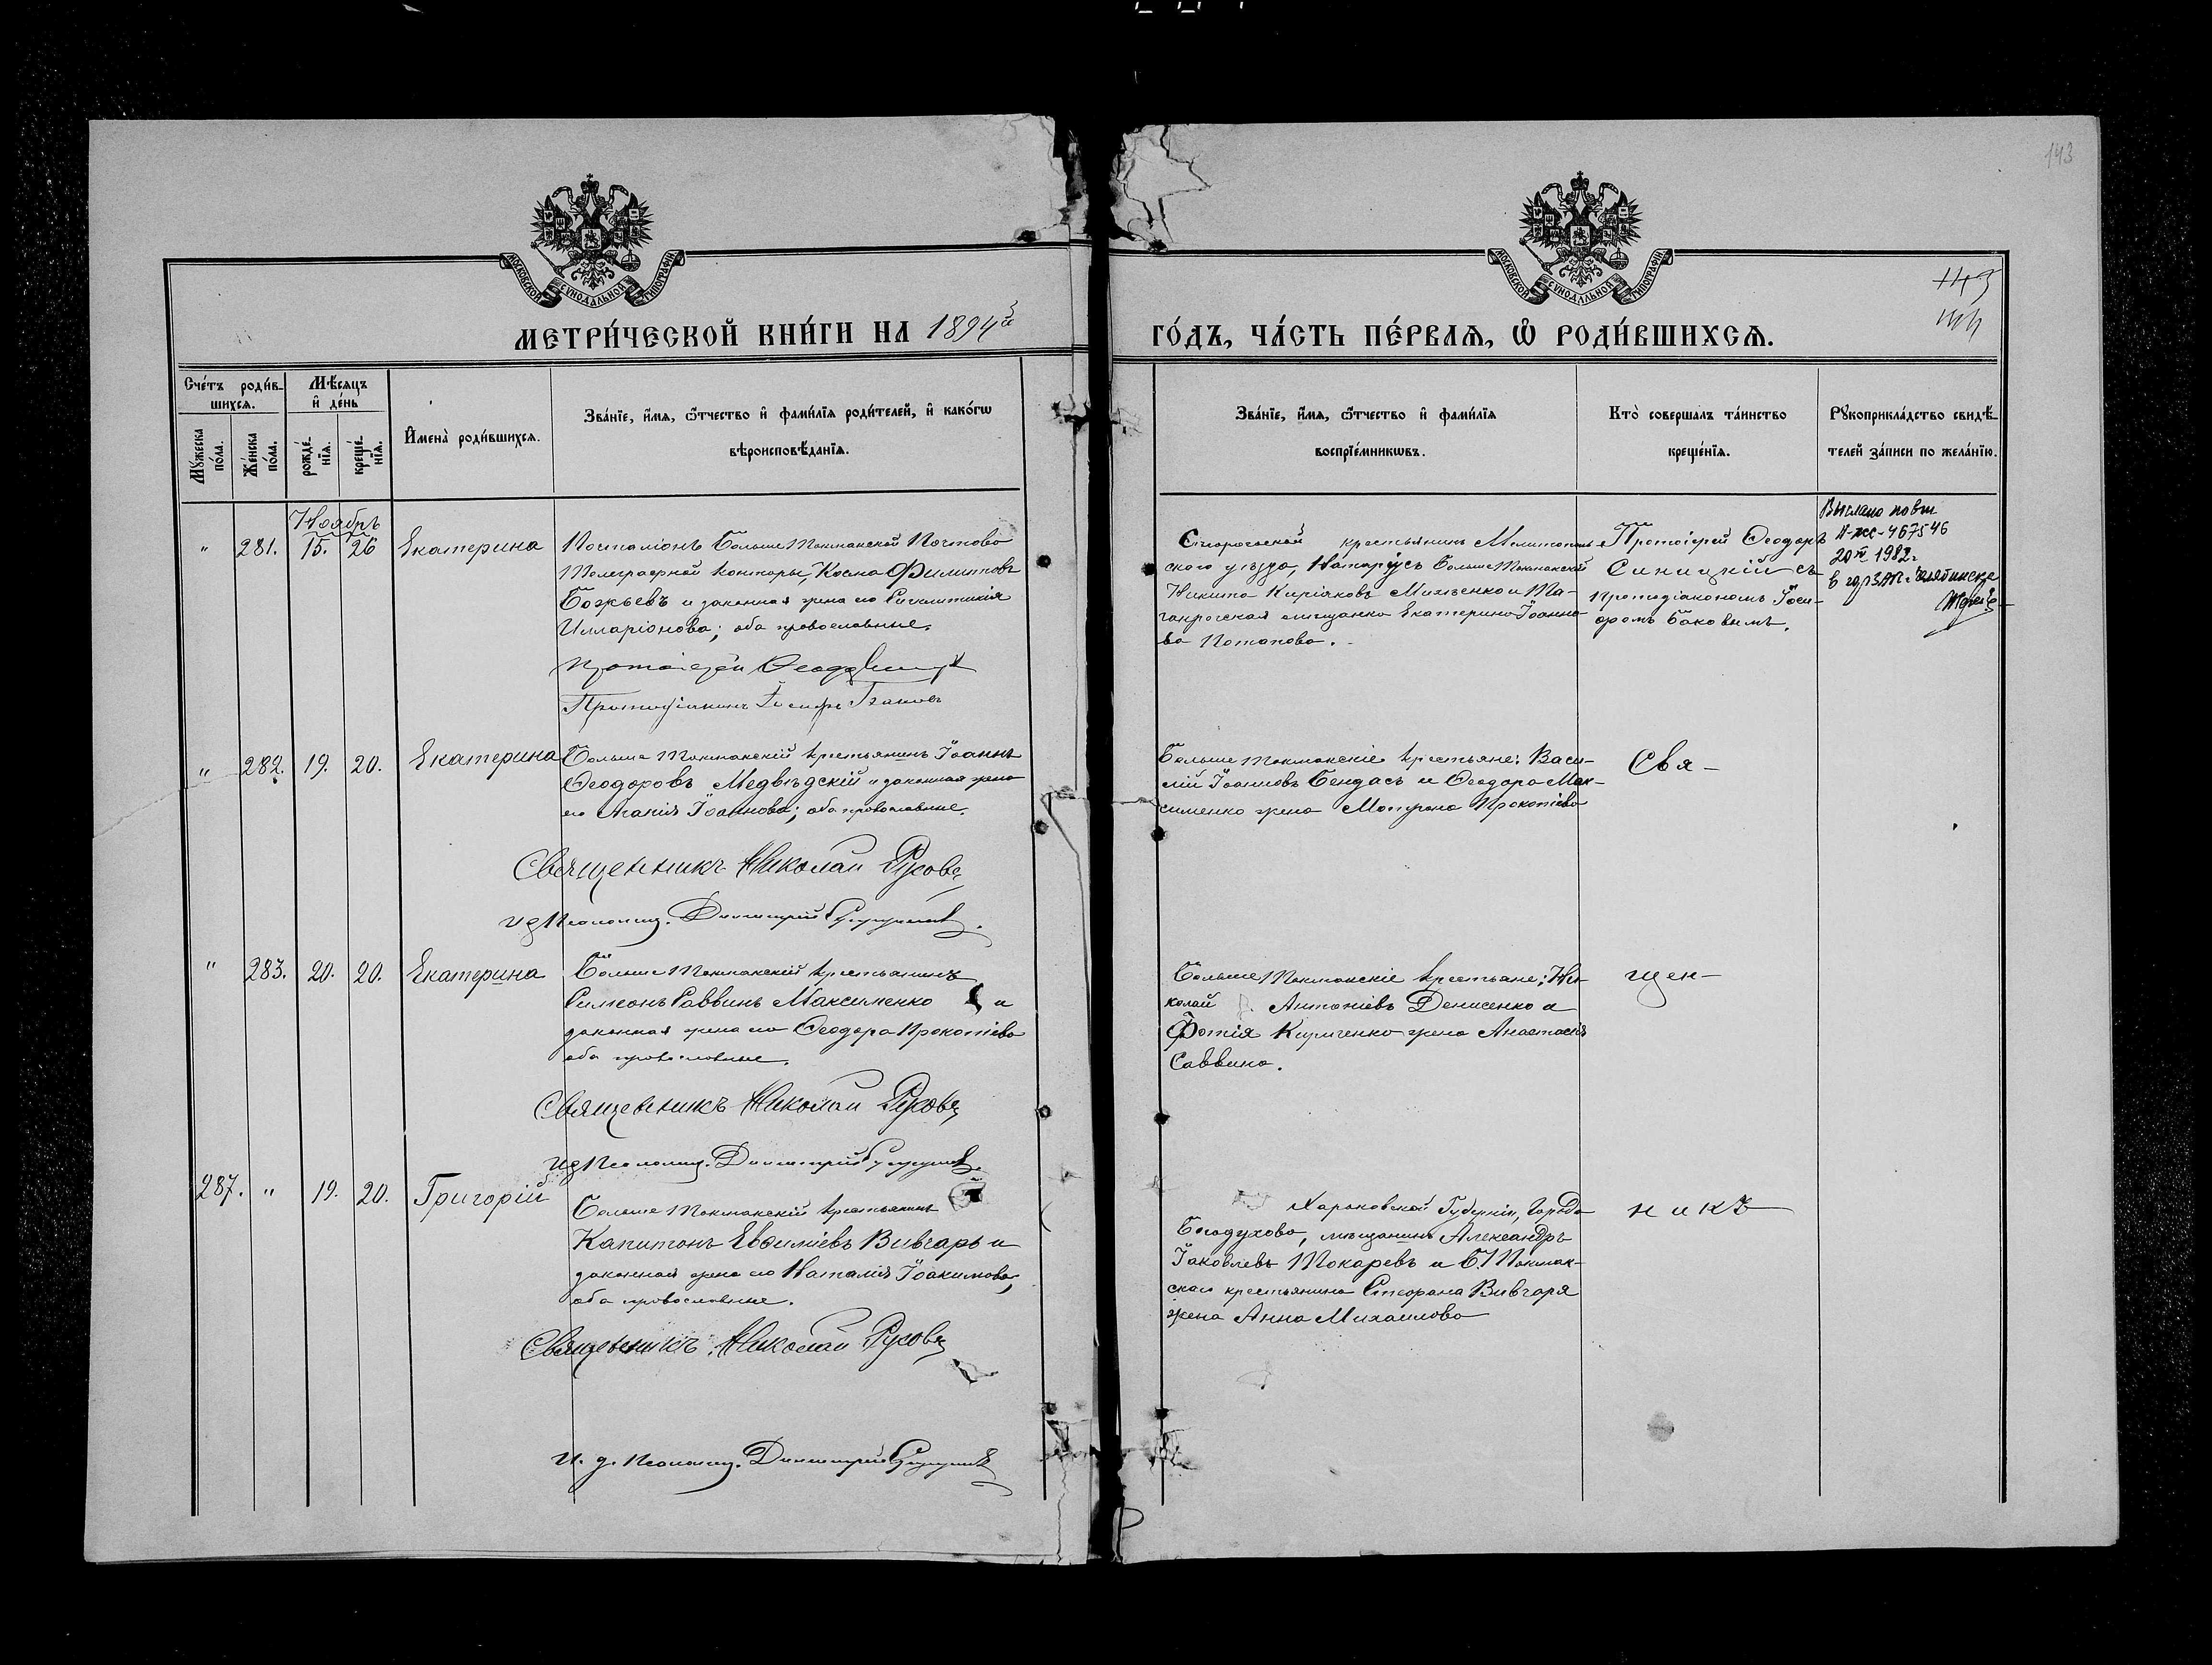 143
МОСКОВСКОЙ СѴНОДАЛЬНОЙ ТИПОГРАФІИ
МОСКОВСКОЙ СѴНОДАЛЬНОЙ ТИПОГРАФІИ
143
МЕТРИ́ЧЕСКОЙ КНИ́ГИ НА 1894й
ГО́ДЪ, ЧА́СТЬ ПЕ́РВАѦ, Ѡ РОДИ́ВШИХСѦ.
Сче́тъ роди́в-
шихсѧ.
Мѣ́сѧцъ
и҆ де́нь
Мꙋ́жеска по́ла.
Же́нска по́ла.
рожде́-
нїѧ.
креще́-
нїѧ.
И҆мена̀ роди́вшихсѧ.
Зва́нїе, и҆́мѧ, ѻ҆́тчество и҆ фами́лїѧ роди́телей, и҆ како́гѡ
вѣроисповѣ́данїѧ.
Зва́нїе, и҆́мѧ, ѻ҆́тчество и҆ фами́лїѧ
воспрїе́мникѡвъ.
Кто̀ соверша́лъ та́инство
креще́нїѧ.
Рꙋкоприкла́дство свидѣ́-
телей за́писи по жела́нїю.
Ноябрь
" 281. 15. 26 Екатерина
Почталіонъ Больше Токмакской Почтово
Телеграфной Конторы, Косма Филипповъ
Божьевъ и законная жена его
Илларіонова; оба православные.
Протоіерей Ѳеодоръ
Протодіаконъ Іосифъ Баковъ
крестьянинъ Мелитополь-
ского уѣзда, Нотаріусъ Больше Токмакскій
Никита Киріаковъ Михненко и Та-
ганрогская мѣщанка Екатерина Іоанно-
ва Потапова.
Протоіерей Ѳеодоръ
Синицкій съ
Протодіакономъ Іоси-
фомъ Баковымъ.
Выслано повт
II-жс-467546
20 IV 1982г
в г. Челябинске
" 282. 19. 20. Екатерина
Больше Токмакскій крестьянинъ Іоаннъ
Ѳеодоровъ Медвѣдскій и законная жена
его Агапія Іоаннова; оба православные.
Священникъ Николай
И.д. Псаломщ. Димитрій
Больше Токмакскіе крестьяне: Васи-
лій Іоанновъ Бендасъ и Ѳеодора Мак-
сименко жена Матрона Прокопіева
Свя-
" 283. 20. 20. Екатерина
Больше Токмакскій крестьянинъ
Симеонъ Саввинъ Максименко и
законная жена его Ѳеодора Прокопіева
оба православные.
Священникъ Николай
И.д. Псаломщ. Димитрій
Больше Токмакскіе крестьяне: Ни-
колай Антоніевъ Денисенко и
Фотія Кирченко жена Анастасія
Саввина.
щен-
287. " 19. 20. Григорій
Больше Токмакскій крестьянинъ
Капитонъ Евѳиміевъ Вивчарь и
законная жена его Наталія Іоакимова;
оба православные.
Священникъ Николай
И. д. Псаломщ. Димитрій
Харьковской Губерніи, Города
Богодухова, мѣщанинъ Александръ
Іаковлевъ Токаревъ и Б. Токмак-
скаго крестьянина Стефана Вивчаря
жена Анна Михаилова
никъ